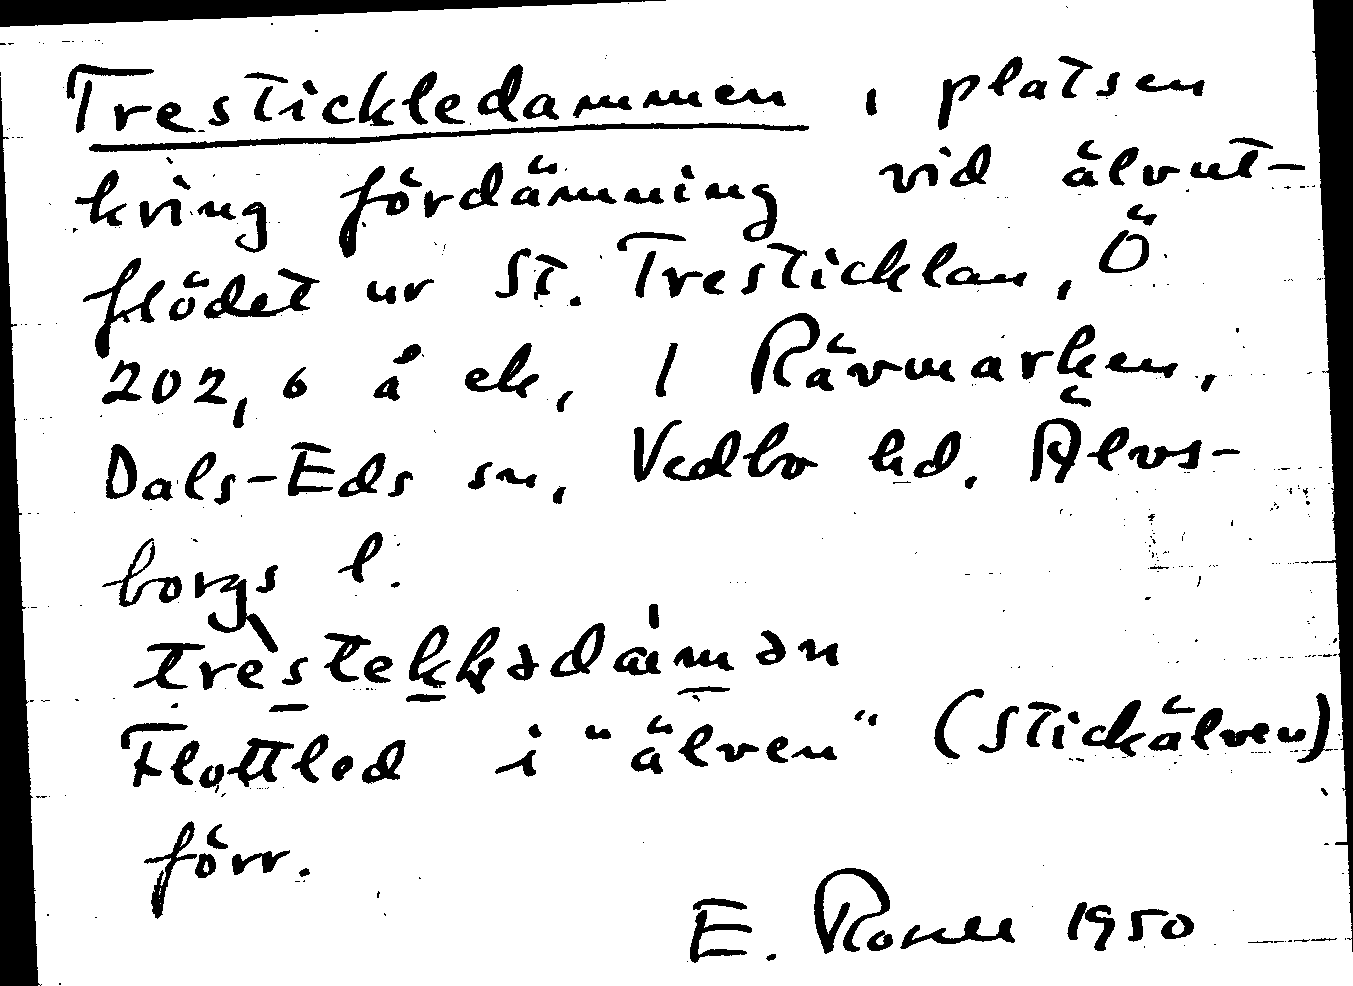 Trestickledammen, platsen
kring fördämning vid älvut-
flödet ur St. Tresticklan, Ö
202,6 å ek, 1 Rävmarken,
Dals-Eds sn, Vedbo hd. Älvs-
borgs l.
Flottled i "älven" (Stickälven)
förr.
E. Rosell 1950